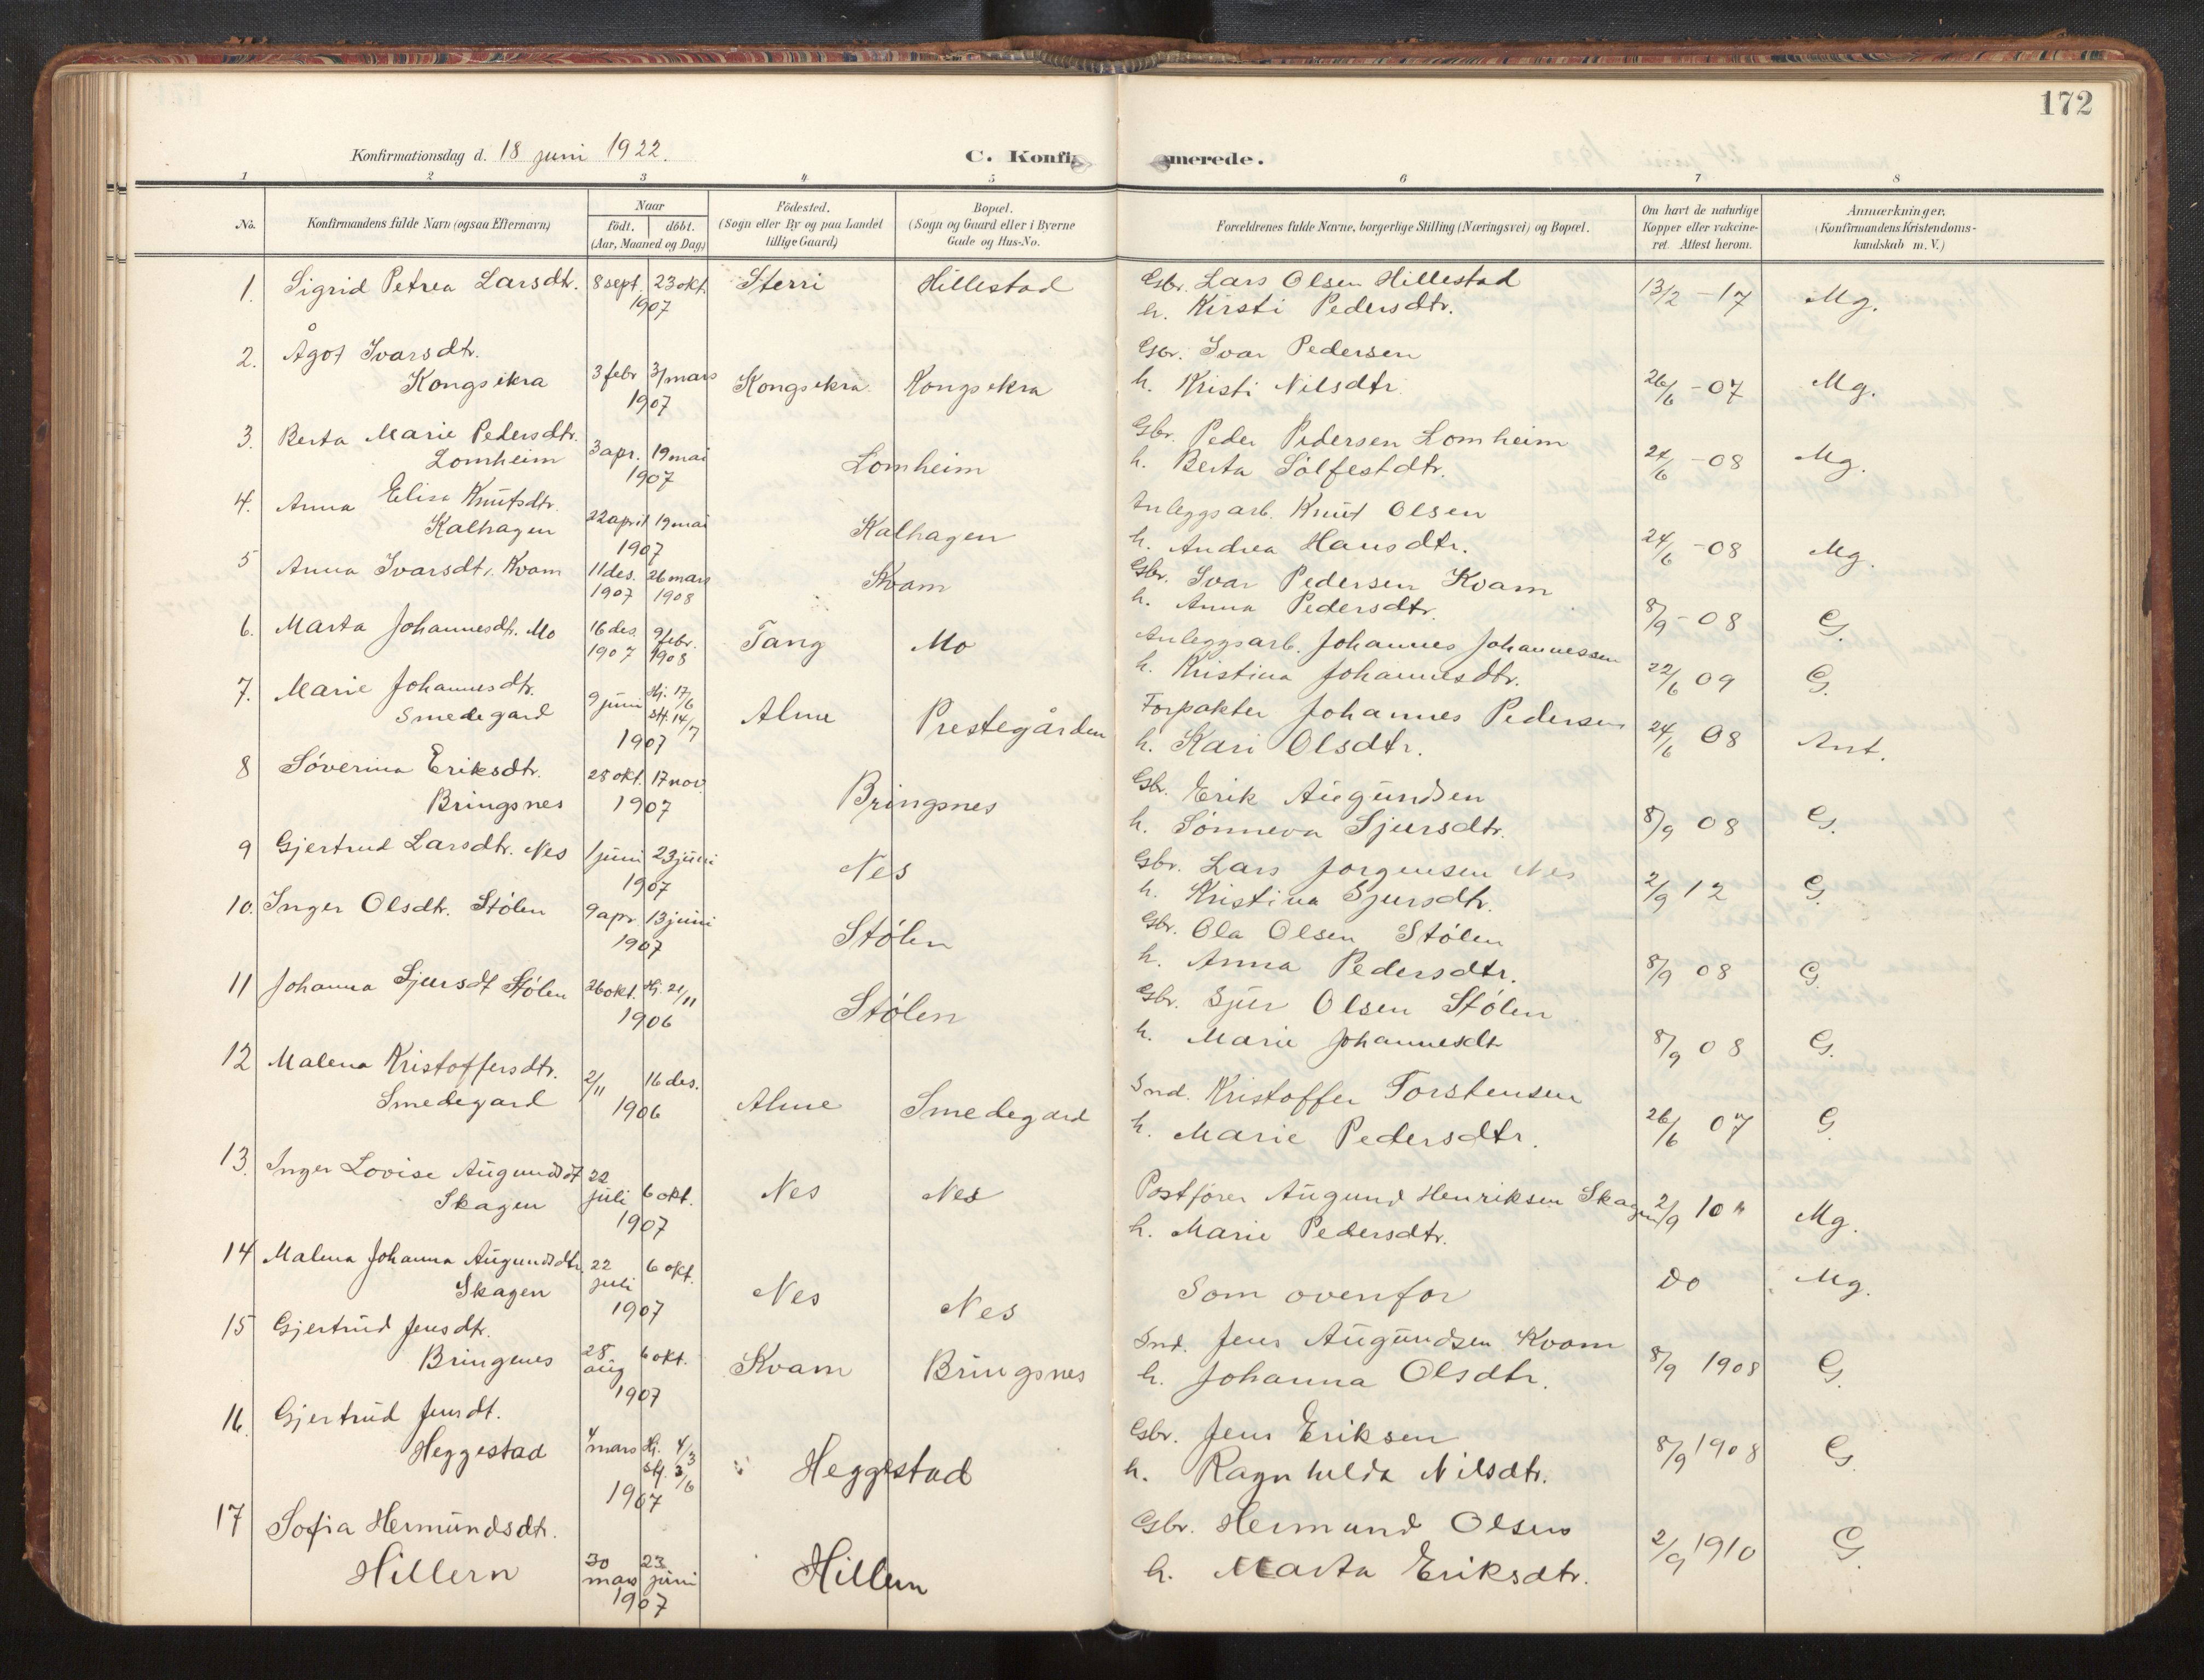 172
Konfirmationsdag d. 18 juni 1922.
C. Konfirmerede.
1 2 3 4 5 6 7 8
No. Konfirmandens fulde Navn (ogsaa Efternavn) Naar født. døbt. (Aar, Maaned og Dag) Fødested. (Sogn eller By og paa Landet tillige Gaard) Bopæl. (Sogn og Gaard eller i Byerne Gade og Hus-No. Forældrenes fulde Navne, borgerlige Stilling (Næringsvei) og Bopæl. Om havt de naturlige Kopper eller vakcineret. Attest herom. Anmærkninger. (Konfirmandens Kristendomskundskab m. V.)
1. Sigrid Petrea Larsdtr. 8 sept. 23 okt. Sterri Hillestad Gbr. Lars Olsen Hillestad 13/2 - 17 Mg.
1907 h. Kirsti Pedersdtr.
2. Ågot Ivarsdtr. Gbr. Ivar Pedersen
Kongsekra 3 febr 31 mars Kongsekra Kongsekra h. Kristi Nilsdtr. 26/6 - 07 Mg.
1907
3. Berta Marie Pedersdtr. Gbr. Peder Pedersen Lomheim
Lomheim 3 apr. 19 mai Lomheim h. Berta Sølfestdtr. 24/6 - 08 Mg.
1907
4. Anna Elisa Knutsdtr. Anleggsarb. Knut Olsen
Kalhagen 22 april 19 mai Kalhagen h. Andrea Hansdtr. 24/6 - 08 Mg.
1907
5 Anna Ivarsdtr. Kvam 11 des. 26 mars Kvam Gbr. Ivar Pedersen Kvam
1907 1908 h. Anna Pedersdtr. 8/9 - 08 G.
6. Marta Johannesdtr. Mo 16 des. 9 febr. Tang Mo Anleggsarb. Johannes Johannessen
1907 1908 h. Kristina Johannesdtr. 22/6 09 G.
7. Marie Johannesdtr. 9 juni Hj. 17/6 Forpakter Johannes Pedersen
Smedegard stf. 14/7 Alme Prestegården h. Kari Olsdtr. 24/6 08 Ant.
1907
8 Søverina Eriksdtr. 28 okt. 17 nov. Gbr. Erik Augundsen
Bringsnes 1907 Bringsnes h. Sønneva Sjursdtr. 8/9 08 G.
9 Gjertrud Larsdtr. Nes 1 juni 23 juni Nes Gbr. Lars Jorgensen Nes
1907 h. Kristina Sjursdtr. 2/9 12 G.
10. Inger Olsdtr. Stølen 9 apr 13 juni Stølen Gbr. Ola Olsen Stølen
1907 h. Anna Pedersdtr. 8/9 08 G.
11 Johanna Sjursdt Stølen 26 okt. Hj. 21/11 Stølen Gbr. Sjur Olsen Stølen
1906 h. Marie Johannesdt 8/9 08 G.
12 Malena Kristoffersdtr. 2/11 16 des. Ind. Kristoffer Torstensen
Smedegard 1906 Alme Smedegard h. Marie Pedersdtr. 26/6 07 G.
13. Inger Lovise Augundsdt 22 juli 6 okt. Nes Nes Postfører Augund Henriksen Skagen 2/9 10 Mg.
Skagen 1907 h. Marie Pedersdtr.
14 Malena Johanna Augundsdtr. 22 juli 6 okt. Nes Nes Som ovenfor Do Mg.
Skagen 1907
15 Gjertrud Jensdtr. Ind. Jens Augundsen Kvam
Bringsnes 28 aug 6 okt. Kvam Bringsnes h. Johanna Olsdtr. 8/9 1908 G.
1907
16. Gjertrud Jensdt. 4 mars Hj. 4/3 Gbr. Jens Eriksen
Heggestad stf. 2/6 Heggestad h. Ragnhilda Nilsdtr. 8/9 1908 G.
1907
17 Sofia Hermundsdtr. Gbr. Hermund Olsen
Hillern 30 mars 23 juni Hillern h. Marta Eriksdtr. 2/9 1910 G.
1907